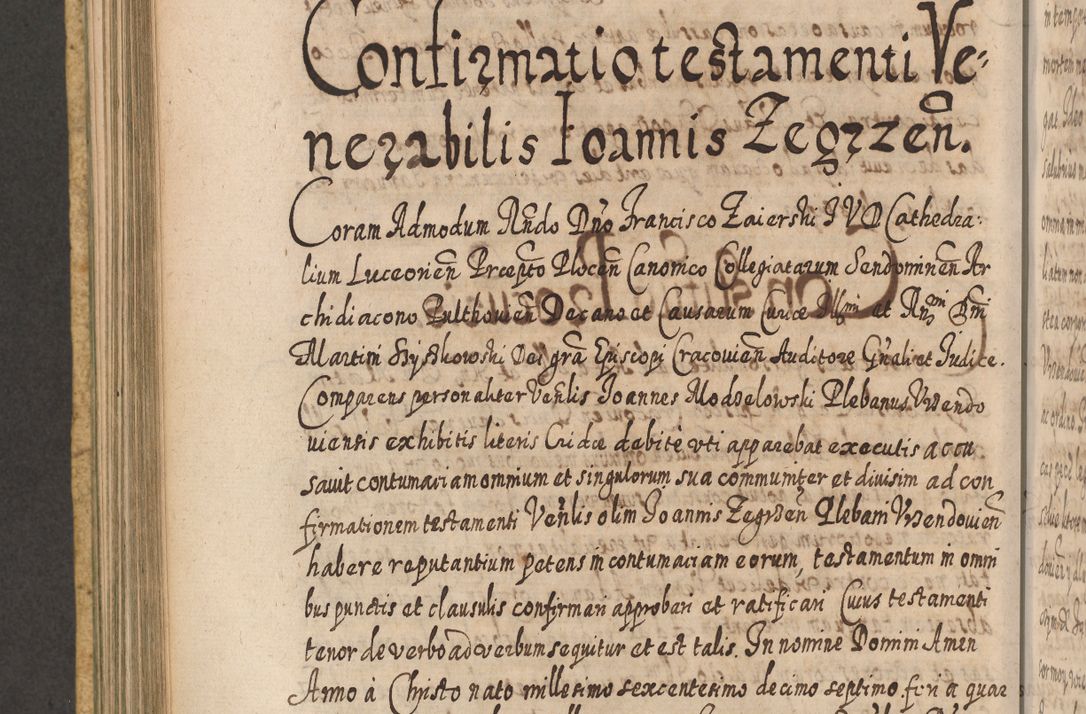 Confirmatio testamenti Ve-
nerabilis Ioannis Zegrzen̄.
Coram Admodum Rn̄do Dn̄o Francisco Zaierski IVD Cathedra-
lium Luceorien̄ Præpto Plocen̄ Canonico Collegiatarum Sendomiriēn Ar
chidiacono Pulthovien̄ Decano et Causarum Curiæ Illmi et Rn̄di Dni
Martini Szyszkowski Dei grā Episcopi Cracovien̄ Auditore Gn̄ali et Iudice.
Comparens personaliter Venlis Ioannes Modzelowski Plebanus Vrzendo
uiensis exhibitis literis Cridæ debitè vti apparebat executis accu
sauit contumaciam omnium et singulorum sua communiter et divisim ad con
firmationem testamenti Venlis olim Ioannis Zegrzen̄ Plebani Vrzendouien̄
habere reputantium petens in contumaciam eorum, testamentum in omni
bus punctis et clausulis confirmari approbari et ratificari Cuius testamenti
tenor de verbo ad verbum sequitur et est talis. In nomine Domini Amen
Anno à Christo nato millesimo sexcentesimo decimo septimo feria quar